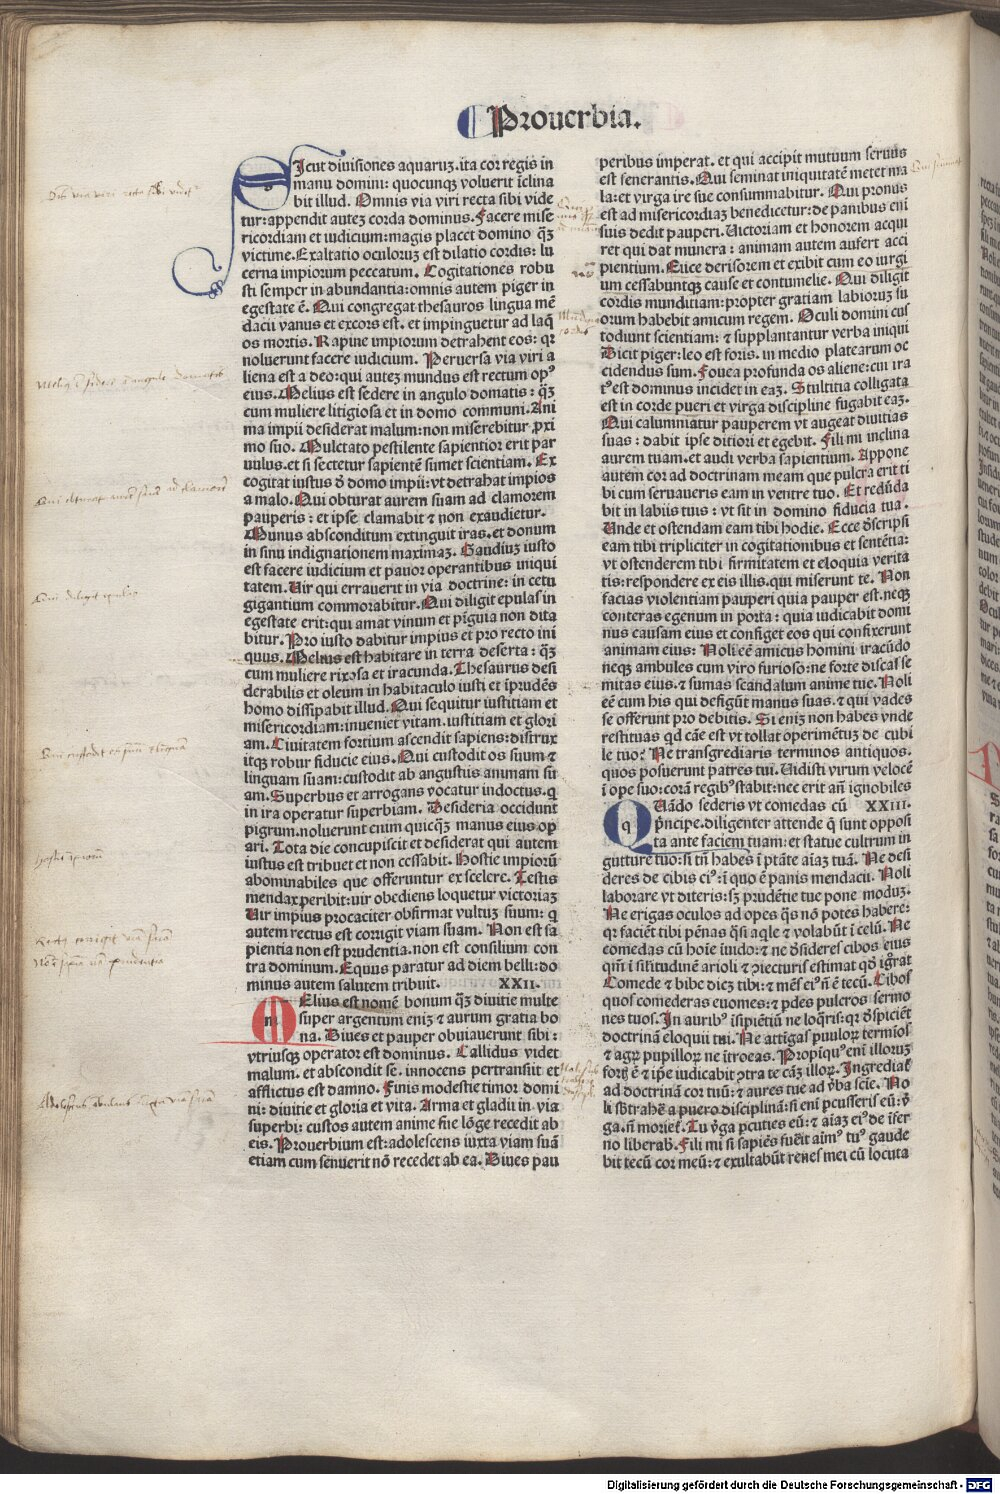 Prouerbia.
Sicut diuisiones aquaruz. ita cor regis in
manu domini: quocunqz voluerit īclina
bit illud. Omnis via viri recta sibi vide
tur: appendit autez corda dominus. Facere mise
ricordiam et iudicium: magis placet domino q̄z
victime. Exaltatio oculoruz est dilatio cordis: lu
cerna impiorum peccatum. Cogitationes robu
sti semper in abundantia: omnis autem piger in
egestate ē. Qui congregat thesauros lingua mē
dacii vanus et excors est. et impinguetur ad laq̄
os mortis. Rapine impiorum detrahent eos: qr
noluerunt facere iudicium. Peruersa via viri a
liena est a deo: qui autez mundus est rectum opꝰ
eius. Melius est sedere in angulo domatis: q̄z
cum muliere litigiosa et in domo communi. Ani
ma impii desiderat malum: non miserebitur ꝓxi
mo suo. Mulctato pestilente sapientior erit par
uulus. et si sectetur sapientē sumet scientiam. Ex
cogitat iustus ꝺ̄ domo impii: vt detrahat impios
a malo. Qui obturat aurem suam ad clamorem
pauperis: et ipse clamabit ⁊ non exaudietur.
Munus absconditum extinguit iras. et donum
in sinu indignationem maximaz. Gaudiuz iusto
est facere iudicium et pauor operantibus iniqui
tatem. Uir qui errauerit in via doctrine: in cetu
gigantium commorabitur. Qui diligit epulas in
egestate erit: qui amat vinum et pīguia non dita
bitur. Pro iusto dabitur impius et pro recto ini
quus. Melius est habitare in terra deserta: q̄z
cum muliere rixosa et iracunda. Thesaurus desi
derabilis et oleum in habitaculo iusti et īprudēs
homo dissipabit illud. Qui sequitur iustitiam et
misericordiam: inueniet vitam. iustitiam et glori
am. Ciuitatem fortium ascendit sapiens: distrux
itqz robur fiducie eius. Qui custodit os suum ⁊
linguam suam: custodit ab angustiis animam su
am. Superbus et arrogans vocatur indoctus. q
in ira operatur superbiam. Desideria occidunt
pigrum. noluerunt enim quicq̄z manus eius op
ari. Tota die concupiscit et desiderat qui autem
iustus est tribuet et non cessabit. Hostie impiorū
abominabiles que offeruntur ex scelere. Testis
mendax peribit: vir obediens loquetur victoriaz
Uir impius procaciter obfirmat vultuz suum: q
autem rectus est corrigit viam suam. Non est sa
pientia non est prudentia. non est consilium con
tra dominum. Equus paratur ad diem belli: do
minus autem salutem tribuit. XXII.
Melius est nomē bonum q̄z diuitie multe
super argentum eniz ⁊ aurum gratia bo
na. Diues et pauper obuiauerunt sibi:
vtriusqz operator est dominus. Callidus videt
malum. et abscondit se. innocens pertransiit et
afflictus est damno. Finis modestie timor domi
ni: diuitie et gloria et vita. Arma et gladii in via
superbi: custos autem anime sue lōge recedit ab
eis. Prouerbium est: adolescens iuxta viam suā
etiam cum senuerit nō recedet ab ea. Diues pau
peribus imperat. et qui accipit mutuum seruus
est fenerantis. Qui seminat iniquitatē metet ma
la: et virga ire sue consummabitur. Qui pronus
est ad misericordiaz benedicetur: de panibus eni
suis dedit pauperi. Uictoriam et honorem acqui
ret qui dat munera: animam autem aufert acci
pientium. Eiice derisorem et exibit cum eo iurgi
um cessabuntqz cause et contumelie. Qui diligit
cordis munditiam: propter gratiam labioruz su
orum habebit amicum regem. Oculi domini cus
todiunt scientiam: ⁊ supplantantur verba iniqui
Dicit piger: leo est foris. in medio platearum oc
cidendus sum. Fouea profunda os aliene: cui ira
tꝰ est dominus incidet in eaz. Stultitia colligata
est in corde pueri et virga discipline fugabit eaz.
Qui calumniatur pauperem vt augeat diuitias
suas: dabit ipse ditiori et egebit. Fili mi inclina
aurem tuam. et audi verba sapientium. Appone
autem cor ad doctrinam meam que pulcra erit ti
bi cum seruaueris eam in ventre tuo. Et redūda
bit in labiis tuis: vt sit in domino fiducia tua.
Unde et ostendam eam tibi hodie. Ecce ꝺ̄scripsi
eam tibi tripliciter in cogitationibus et sentētia:
vt ostenderem tibi firmitatem et eloquia verita
tis: respondere ex eis illis. qui miserunt te. Non
facias violentiam pauperi quia pauper est. neqz
conteras egenum in porta: quia iudicabit domi
nus causam eius et configet eos qui confixerunt
animam eius: Noli eē amicus homini iracūdo
neqz ambules cum viro furioso: ne forte discas se
mitas eius. ⁊ sumas scandalum anime tue. Noli
eē cum his qui defigūt manus suas. ⁊ qui vades
se offerunt pro debitis. Si eniz non habes vnde
restituas qd cāe est vt tollat operimētuz de cubi
le tuo? Ne transgrediaris terminos antiquos.
quos posuerunt patres tui. Uidisti virum velocē
ī ope suo: corā regibꝰ stabit: nec erit añ ignobiles
Quādo sederis vt comedas cū XXIII.
pͥncipe. diligenter attende q̄ sunt opposi
ta ante faciem tuam: et statue cultrum in
gutture tuo: si tñ habes ī ptāte aīaz tuā. Ne desi
deres de cibis eiꝰ: ī quo ē panis mendacii. Noli
laborare vt diteris: sz prudētie tue pone moduz.
Ne erigas oculos ad opes q̄s nō potes habere:
qr faciēt tibi pēnas q̄si aq̄le ⁊ volabūt ī celū. Ne
comedas cū hoīe īuido: ⁊ ne ꝺ̄sideres cibos eius
qm̄ ī silitudinē arioli ⁊ ꝯiecturis estimat qð ignorat
Comede ⁊ bibe dicz tibi: ⁊ mēs eiꝰ ñ ē tecū. Cibos
quos comederas euomes: ⁊ pdes pulcros sermo
nes tuos. In auribꝰ īsipiētiū ne loq̄ris: qr ꝺ̄spiciēt
doctrinā eloquii tui. Ne attīgas puuloꝝ termios
⁊ agrꝝ pupilloꝝ ne ītroeas. Propīquꝰ enī illoruz
fortis ē ⁊ ip̄e iudicabit ꝯtra te cāz illoꝝ. Ingrediat̄
ad doctrinā cor tuū: ⁊ aures tue ad ꝟba scie. No
li sbtrahē a puero disciplinā: si enī pcusseris eū: ꝟ
ga. ñ moriet̄. Tu ꝟga pcuties eū: ⁊ aīaz eiꝰ de īfer
no liberab̄. Fili mi si sapiēs fuerit aīmꝰ tuꝰ gaude
bit tecū cor meū: ⁊ exultabūt renes mei cū locuta
Digitalisierung gefördert durch die Deutsche Forschungsgemeinschaft - DFG